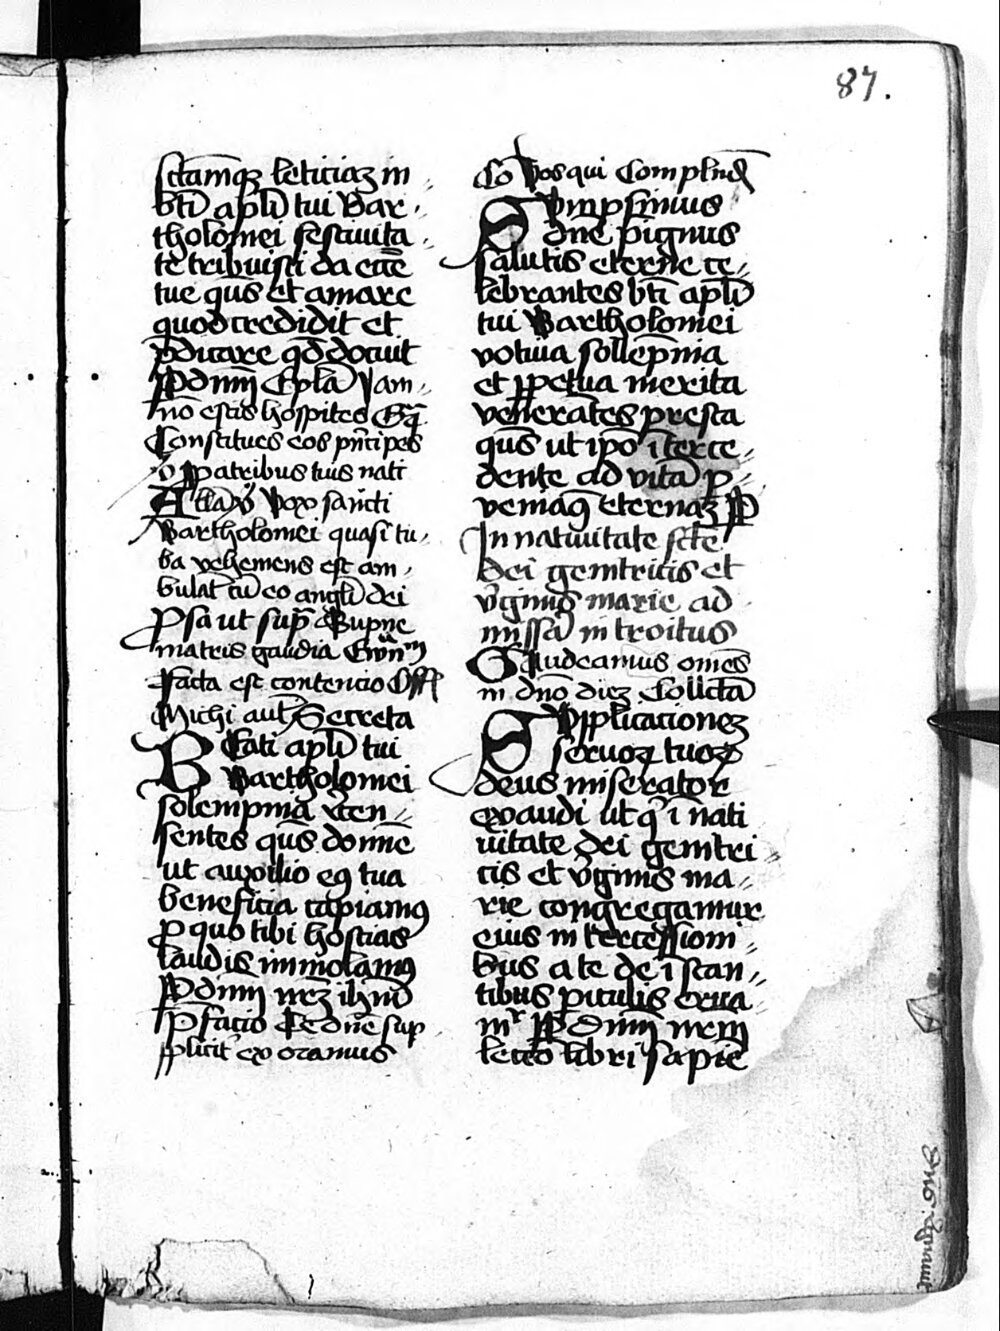 87.
sctamqꝫ leticiaꝫ in
bti apli tui Bar
tholomei festiuita
te tribuisti da ecce
tue qus et amare
quod credidit et
pdicare qd docuit
P dnm Epla Iam
no estis hospites Gr
Constitues eos pncipes
p patribus tuis nati
Alla v Vox sancti
Bartholomei quasi tu
ba vehemens est am
bulat cu eo angli dei
Psa ut sup Supne
matris gaudia Ewm
Facta est contencio Off
Michi aut Secreta
Beati apli tui
Bartholomei
solempnia recen
sentes qus domne
ut auxilio eꝯ tua
beneficia capiamꝯ
p quo tibi hostias
laudis immolamꝯ
P dnm nrm ihm
Pfacio Te dne sup
pliciter exoramus
Co Vos qui Complend
Sumpsimus
dne pignus
salutis eterne ce
lebrantes bti apli
tui Bartholomei
votiua sollepnia
et ppetua merita
venerates presta
qus ut ipo iterce
dente ad vita p
veniaꝯ eternaꝫ P
In natiuitate scte
dei genitricis et
vginis marie ad
missa introitus
Gaudeamus omes
in dno dieꝫ Collecta
Supplicacioneꝫ
seruoꝝ tuoꝝ
deus miserator
exaudi ut q i nati
uitate dei genitri
cis et vginis ma
rie congregamur
eius intercessioni
bus a te de istan
tibus piculis erua
mr P dnm nrm
leccio libri sapie